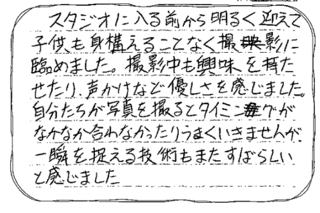 スタジオに入る前から明るく迎えて
子供も身構えることなく撮影に
臨めました。撮影中も興味を持た
せたり、声かけなど優しさを感じました。
自分たちが写真を撮るとタイミングが
なかなか合わなかったりうまくいきませんが
一瞬を捉える技術もまたすばらしい
と感じました